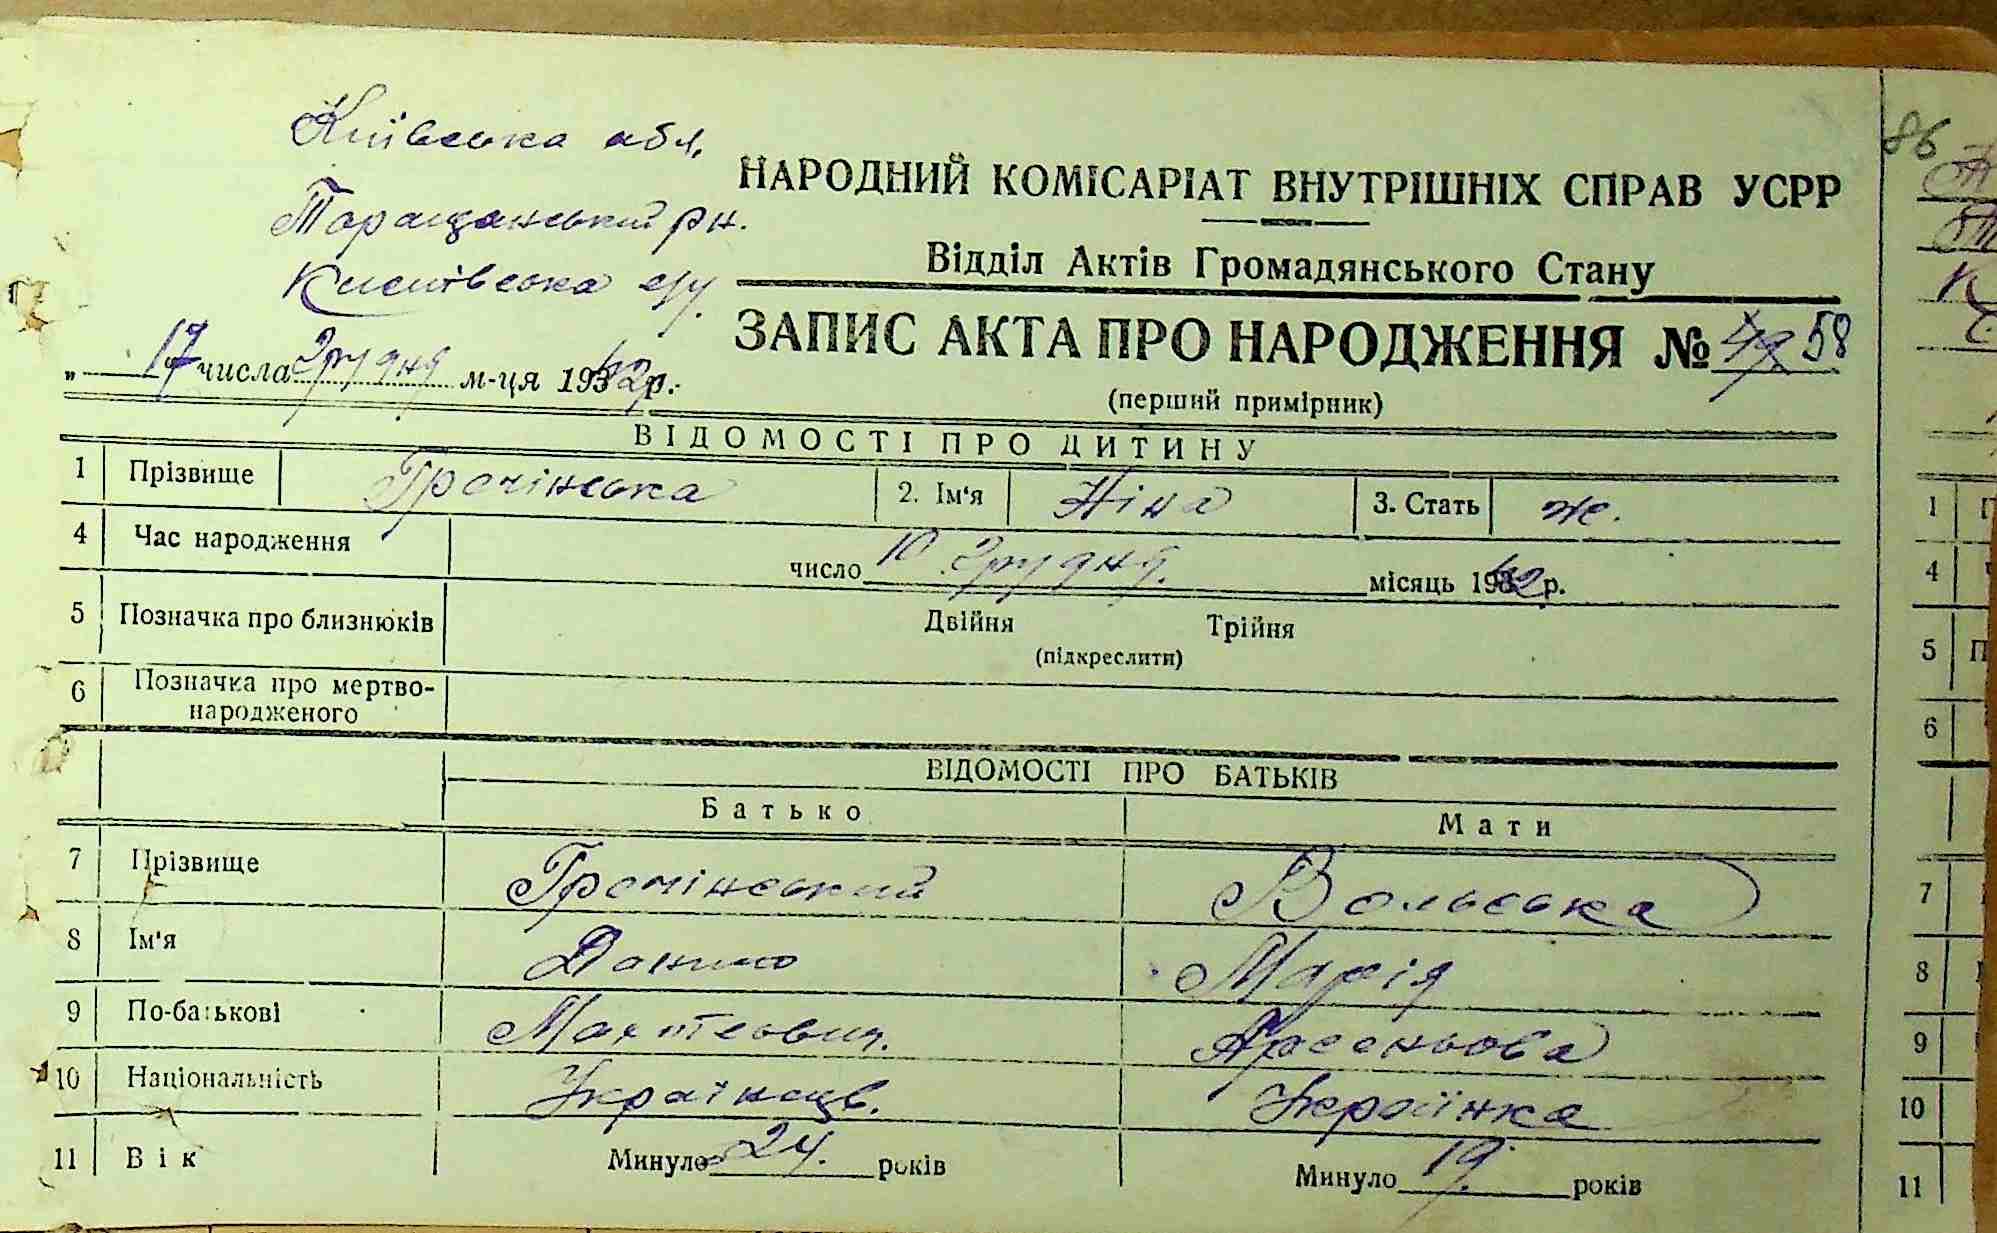 Київська обл.
86
НАРОДНИЙ КОМІСАРІАТ ВНУТРІШНІХ СПРАВ УСРР
Таращанський рн.
Відділ Актів Громадянського Стану
с/у.
ЗАПИС АКТА ПРО НАРОДЖЕННЯ № 49 58
„ 17 числа грудня м-ця 1942 р.
(перший примірник)
ВІДОМОСТІ ПРО ДИТИНУ
1 Прізвище Гречінська 2. Ім'я Ніна 3. Стать ж.
4 Час народження число 10 грудня. місяць 1942 р.
5 Позначка про близнюків Двійня Трійня
(підкреслити)
6 Позначка про мертво-
народженого
ВІДОМОСТІ ПРО БАТЬКІВ
Батько Мати
7 Прізвище Гречінський Вольська
8 Ім'я Данило Марія
9 По-батькові Арсеньова
10 Національність Українець. Українка
11 Вік Минуло 24. років Минуло 19. років
1
4
5 П
6
7
8
9
10
11